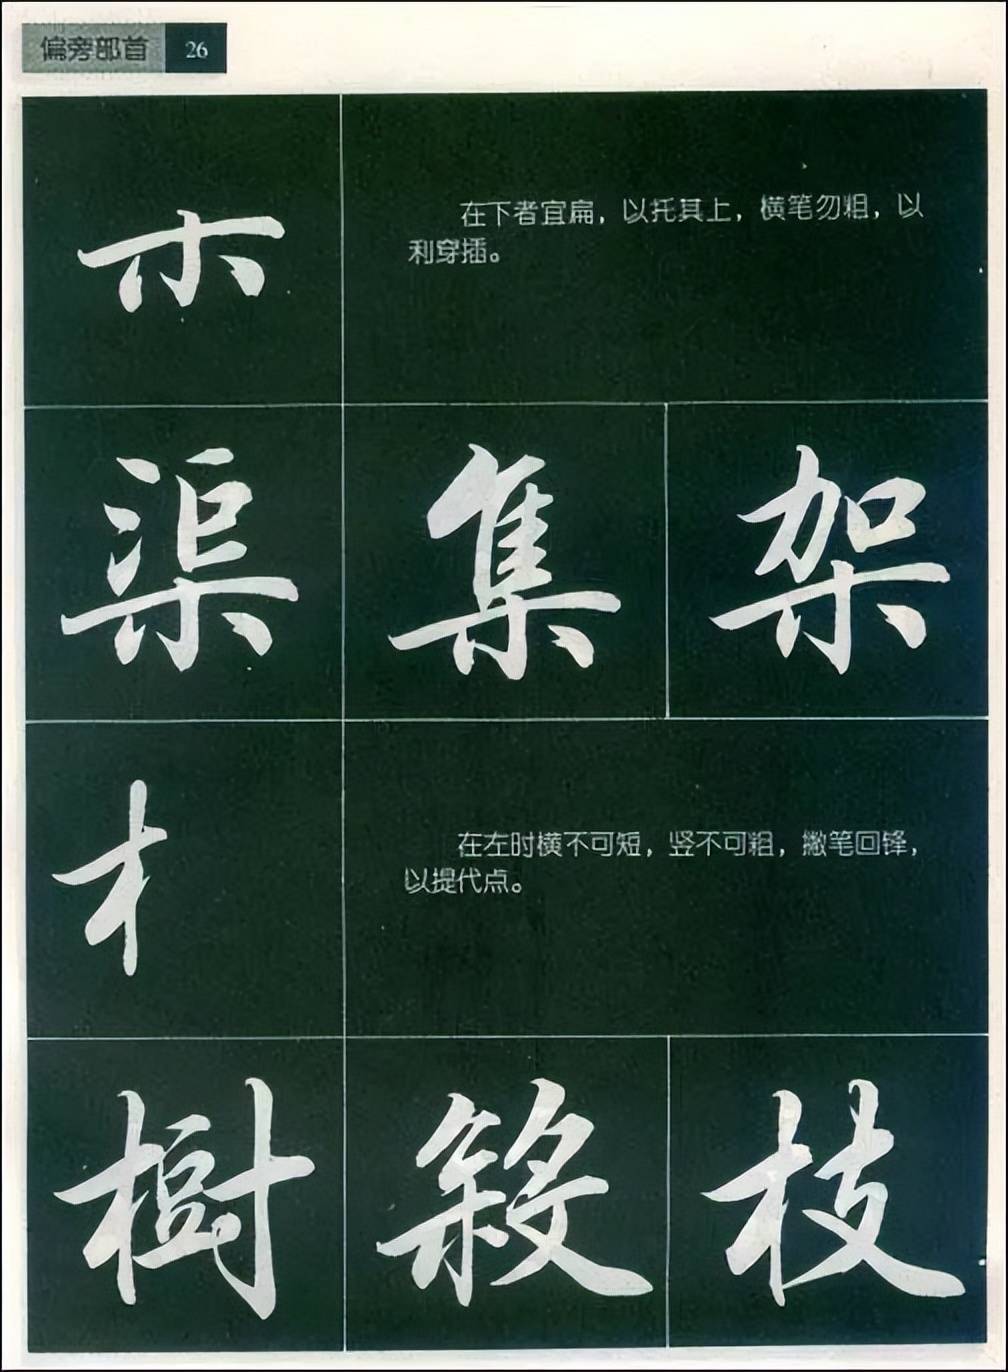 偏旁部首 26
在下者宜扁，以托其上，横笔勿粗，以
利穿插。
渠 集 架
在左时横不可短，竖不可粗，撇笔回锋，
以提代点。
樹 殺 枝